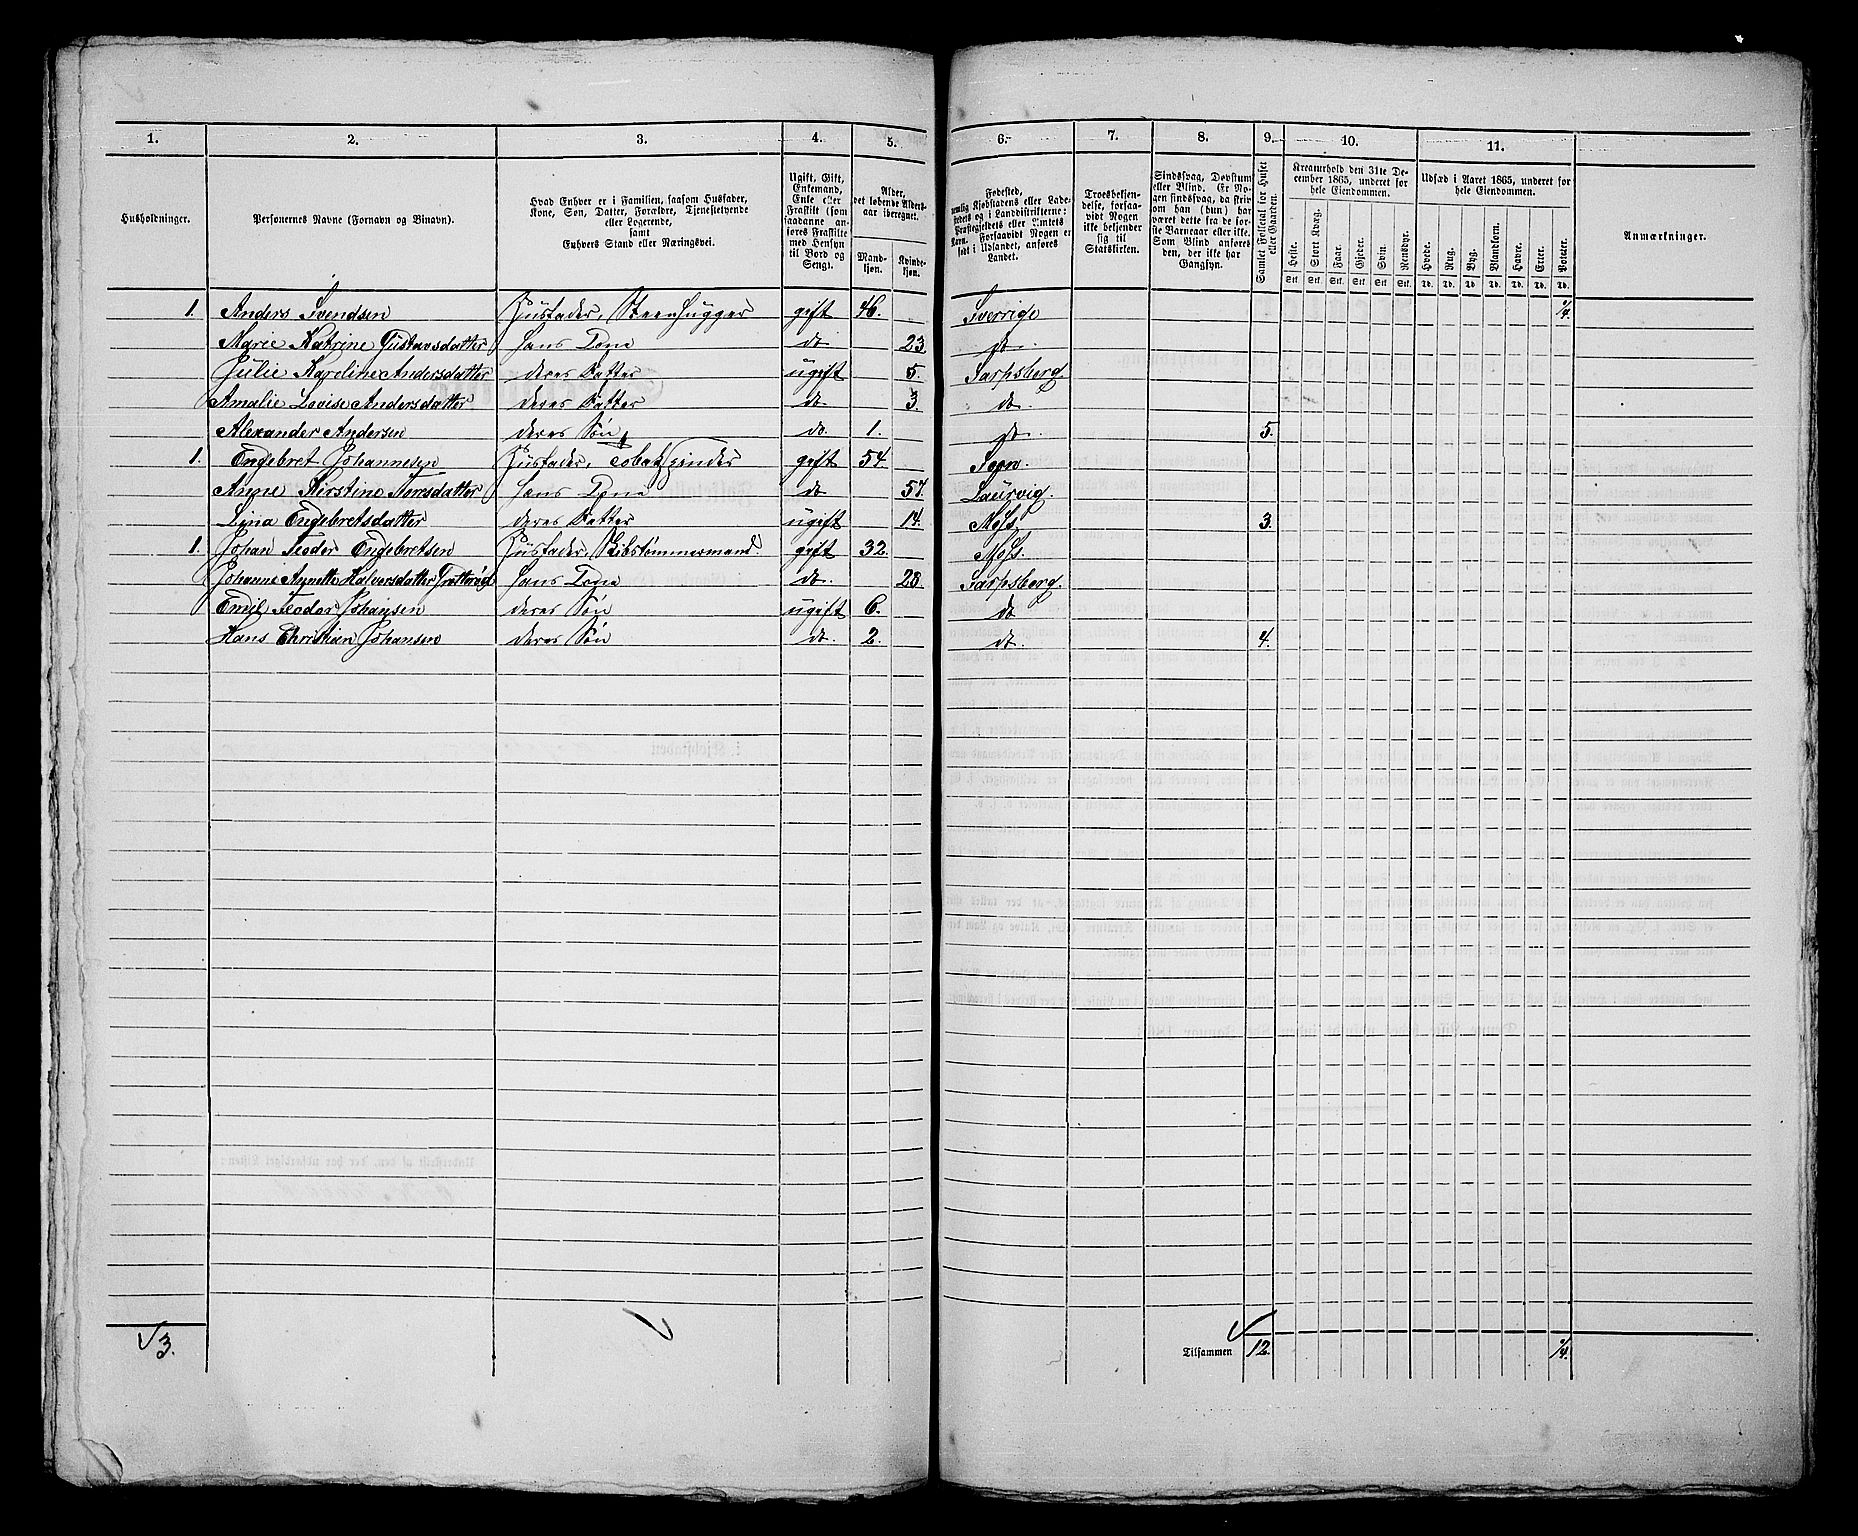 1. 2. 3. 4. 5. 6. 7. 8. 9. 10. 11.
Husholdninger.
Personernes Navne (Fornavn og Binavn).
Hvad Enhver er i Familien, saasom Husfader,
Kone, Søn, Datter, Forældre, Tjenestetyende
eller Logerende,
samt
Enhvers Stand eller Næringsvei.
Ugift, Gift,
Enkemand,
Enke eller
Fraskilt (som
saadanne an-
føres Fraskilte
med Hensyn
til Bord og
Seng).
Alder,
det løbende Alders-
aar iberegnet.
Mand-
kjøn.
Kvinde-
kjøn.
Fødested,
nemlig Kjøbstadens eller Lade-
stedets og i Landdistrikterne:
Præstegjeldets eller Amtets
Navn. Forsaavidt Nogen er
født i Udlandet, anføres
Landet.
Troesbekjen-
delse, forsaa-
vidt Nogen
ikke bekjender
sig til
Statskirken.
Sindssvag, Døvstum
eller Blind. Er No-
gen sindssvag, da skriv
om han (hun) har
været dette fra de før-
ste Barneaar eller ikke.
Som Blind anføres
den, der ikke har
Gangsyn.
Samlet Folketal for Huset
eller Gaarden.
Kreaturhold den 31te De-
cember 1865, underet for
hele Eiendommen.
Heste. Stort Kvæg. Faar. Gjeder. Svin. Rensdyr.
Stk. Stk. Stk. Stk. Stk. Stk.
Udsæd i Aaret 1865, underet for
hele Eiendommen.
Hvede. Rug. Byg. Blandkorn. Havre. Erter. Poteter.
Td. Td. Td. Td. Td. Td. Td.
Anmærkninger.
1. Anders Svendsen Husfader, Steenhugger gift 46. Sverrige 1/4
Marie Katrine Gustavsdatter hans Kone do 23. do.
Julie Karoline Andersdatter deres Datter ugift 5. Sarpsberg.
Amalie Lovise Andersdatter deres Datter do. 3. do.
Alexander Andersen deres Søn do. 1. do. 5.
1. Engebret Johannesen Husfader, Tobakspinder gift 54. Sogn.
Anne Kirstine hans Kone do 57. Laurvig.
Lina Engebretsdatter deres Datter ugift 14. Moss 3.
1. Johan Teodor Engebretsen Husfader, Skibstømmermand. gift 32. Moss.
Johanne Annette Halversdatter hans Kone do. 28. Sarpsberg.
Emil Teodor Johansen deres Søn ugift 6. do
Hans Christian Johansen deres Søn do. 2. do. 4.
3.
Tilsammen 12. 1/4.